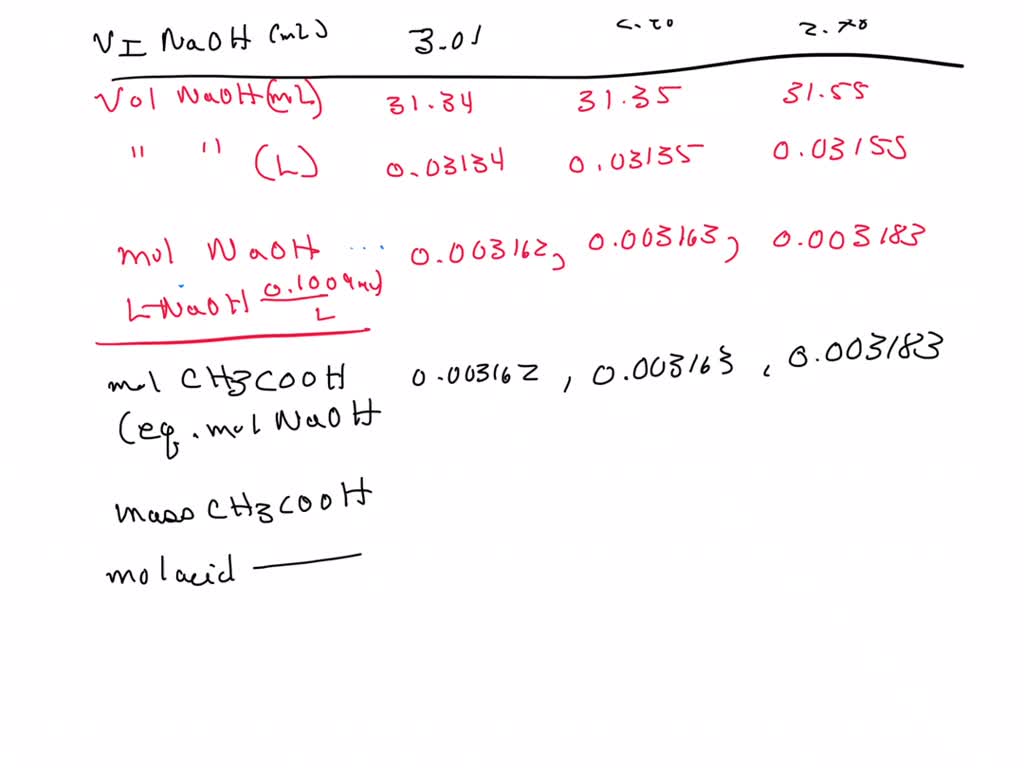 VI NaOH (mL) 3.01 2.70
Vol NaOH (mL) 31.34 31.35 31.55
" " (L) 0.03134 0.03135 0.03155
mol NaOH ... 0.003162, 0.003163, 0.003183
L NaOH 0.1009
L
mol CH3COOH 0.003162, 0.003163, 0.003183
(eq. mol NaOH
mass CH3COOH
mol acid